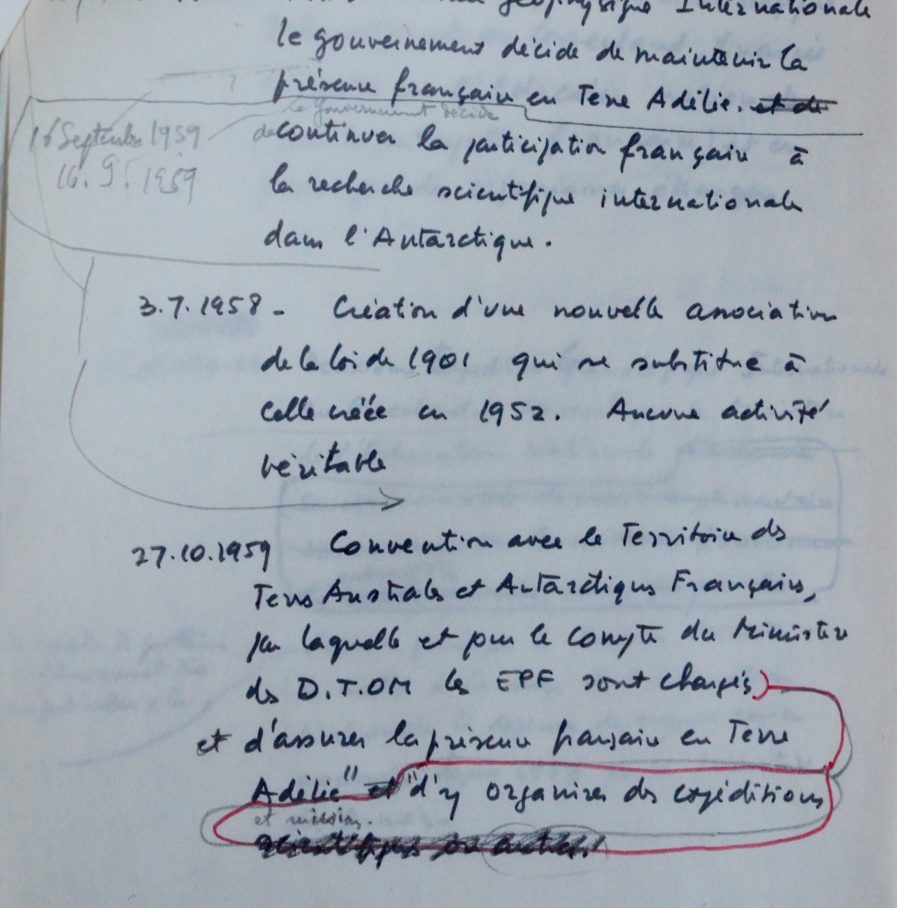 géophysique Internationale
le gouvernement décide de maintenir la
présence française en Terre Adélie. et de
le Gouvernement décide
16 Septembre 1959
de continuer la participation française à
16.9.1959
la recherche scientifique internationale
dans l'Antarctique.
3.7.1958 - Création d'une nouvelle association
de la loi de 1901 qui se substitue à
celle créée en 1952. Aucune activité
véritable
27.10.1959 Convention avec le Territoire des
Terres Australes et Antarctiques Françaises,
par laquelle et pour le compte du Ministère
des D.T.OM les EPF sont chargés
et d'assurer la présence française en Terre
Adélie" et "d'y organiser des expéditions
et missions.
scientifiques ou autres"